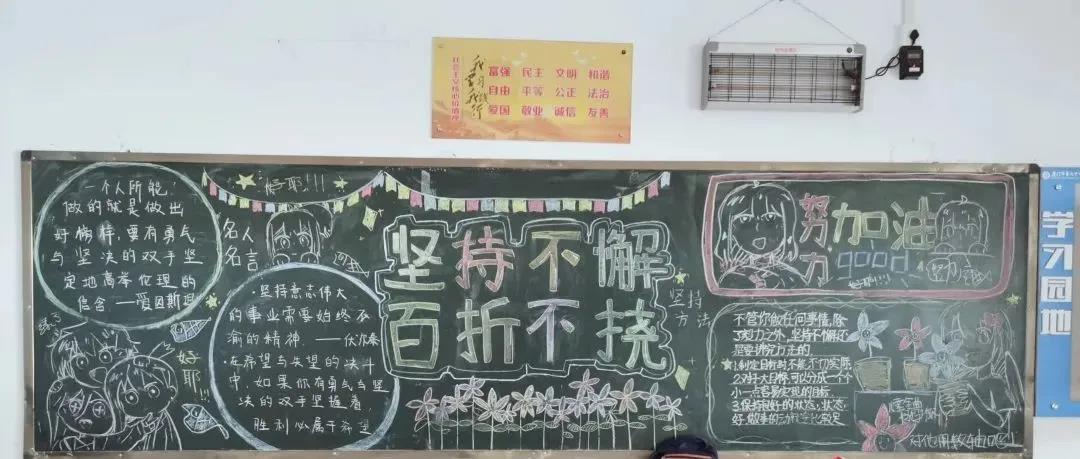 社会主义核心价值观
我学习 我践行
富强 民主 文明 和谐
自由 平等 公正 法治
爱国 敬业 诚信 友善
一个人所能
做的就是做出
好榜样,要有勇气
与坚决的双手坚
定地高举伦理的
信念——爱因斯坦
好耶!!!
名人
名言
坚持意志伟大
的事业需要始终不
渝的精神.——伏尔泰
在希望与失望的决斗
中,如果你有勇气与坚
决的双手坚握着,
胜利必属于希望
好耶!!
坚持不懈
百折不挠
坚持
方法
努力
加油
good
不管你做任何事情,除
了努力之外,坚持不懈还
是要讲究方法的
1.制定目标时不能不切实际
2.对于大目标,可以分成一个个
小一点容易实现的目标
3.保持良好的状态,状态
学习园地